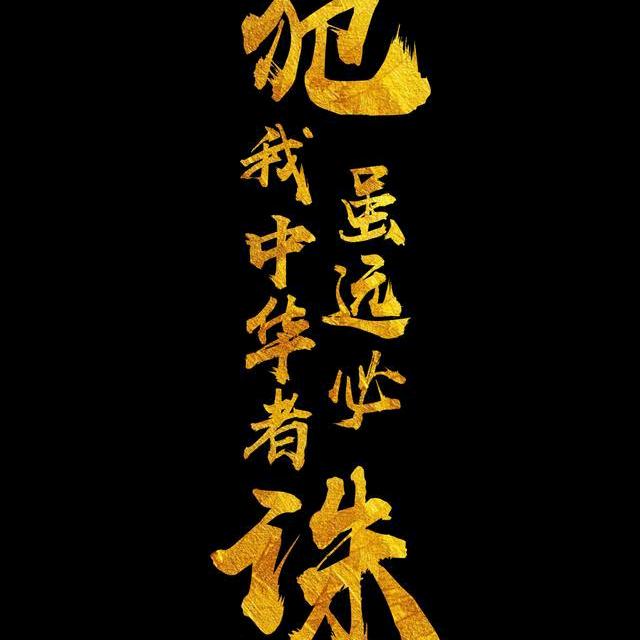 犯
我中华者
虽远必
诛